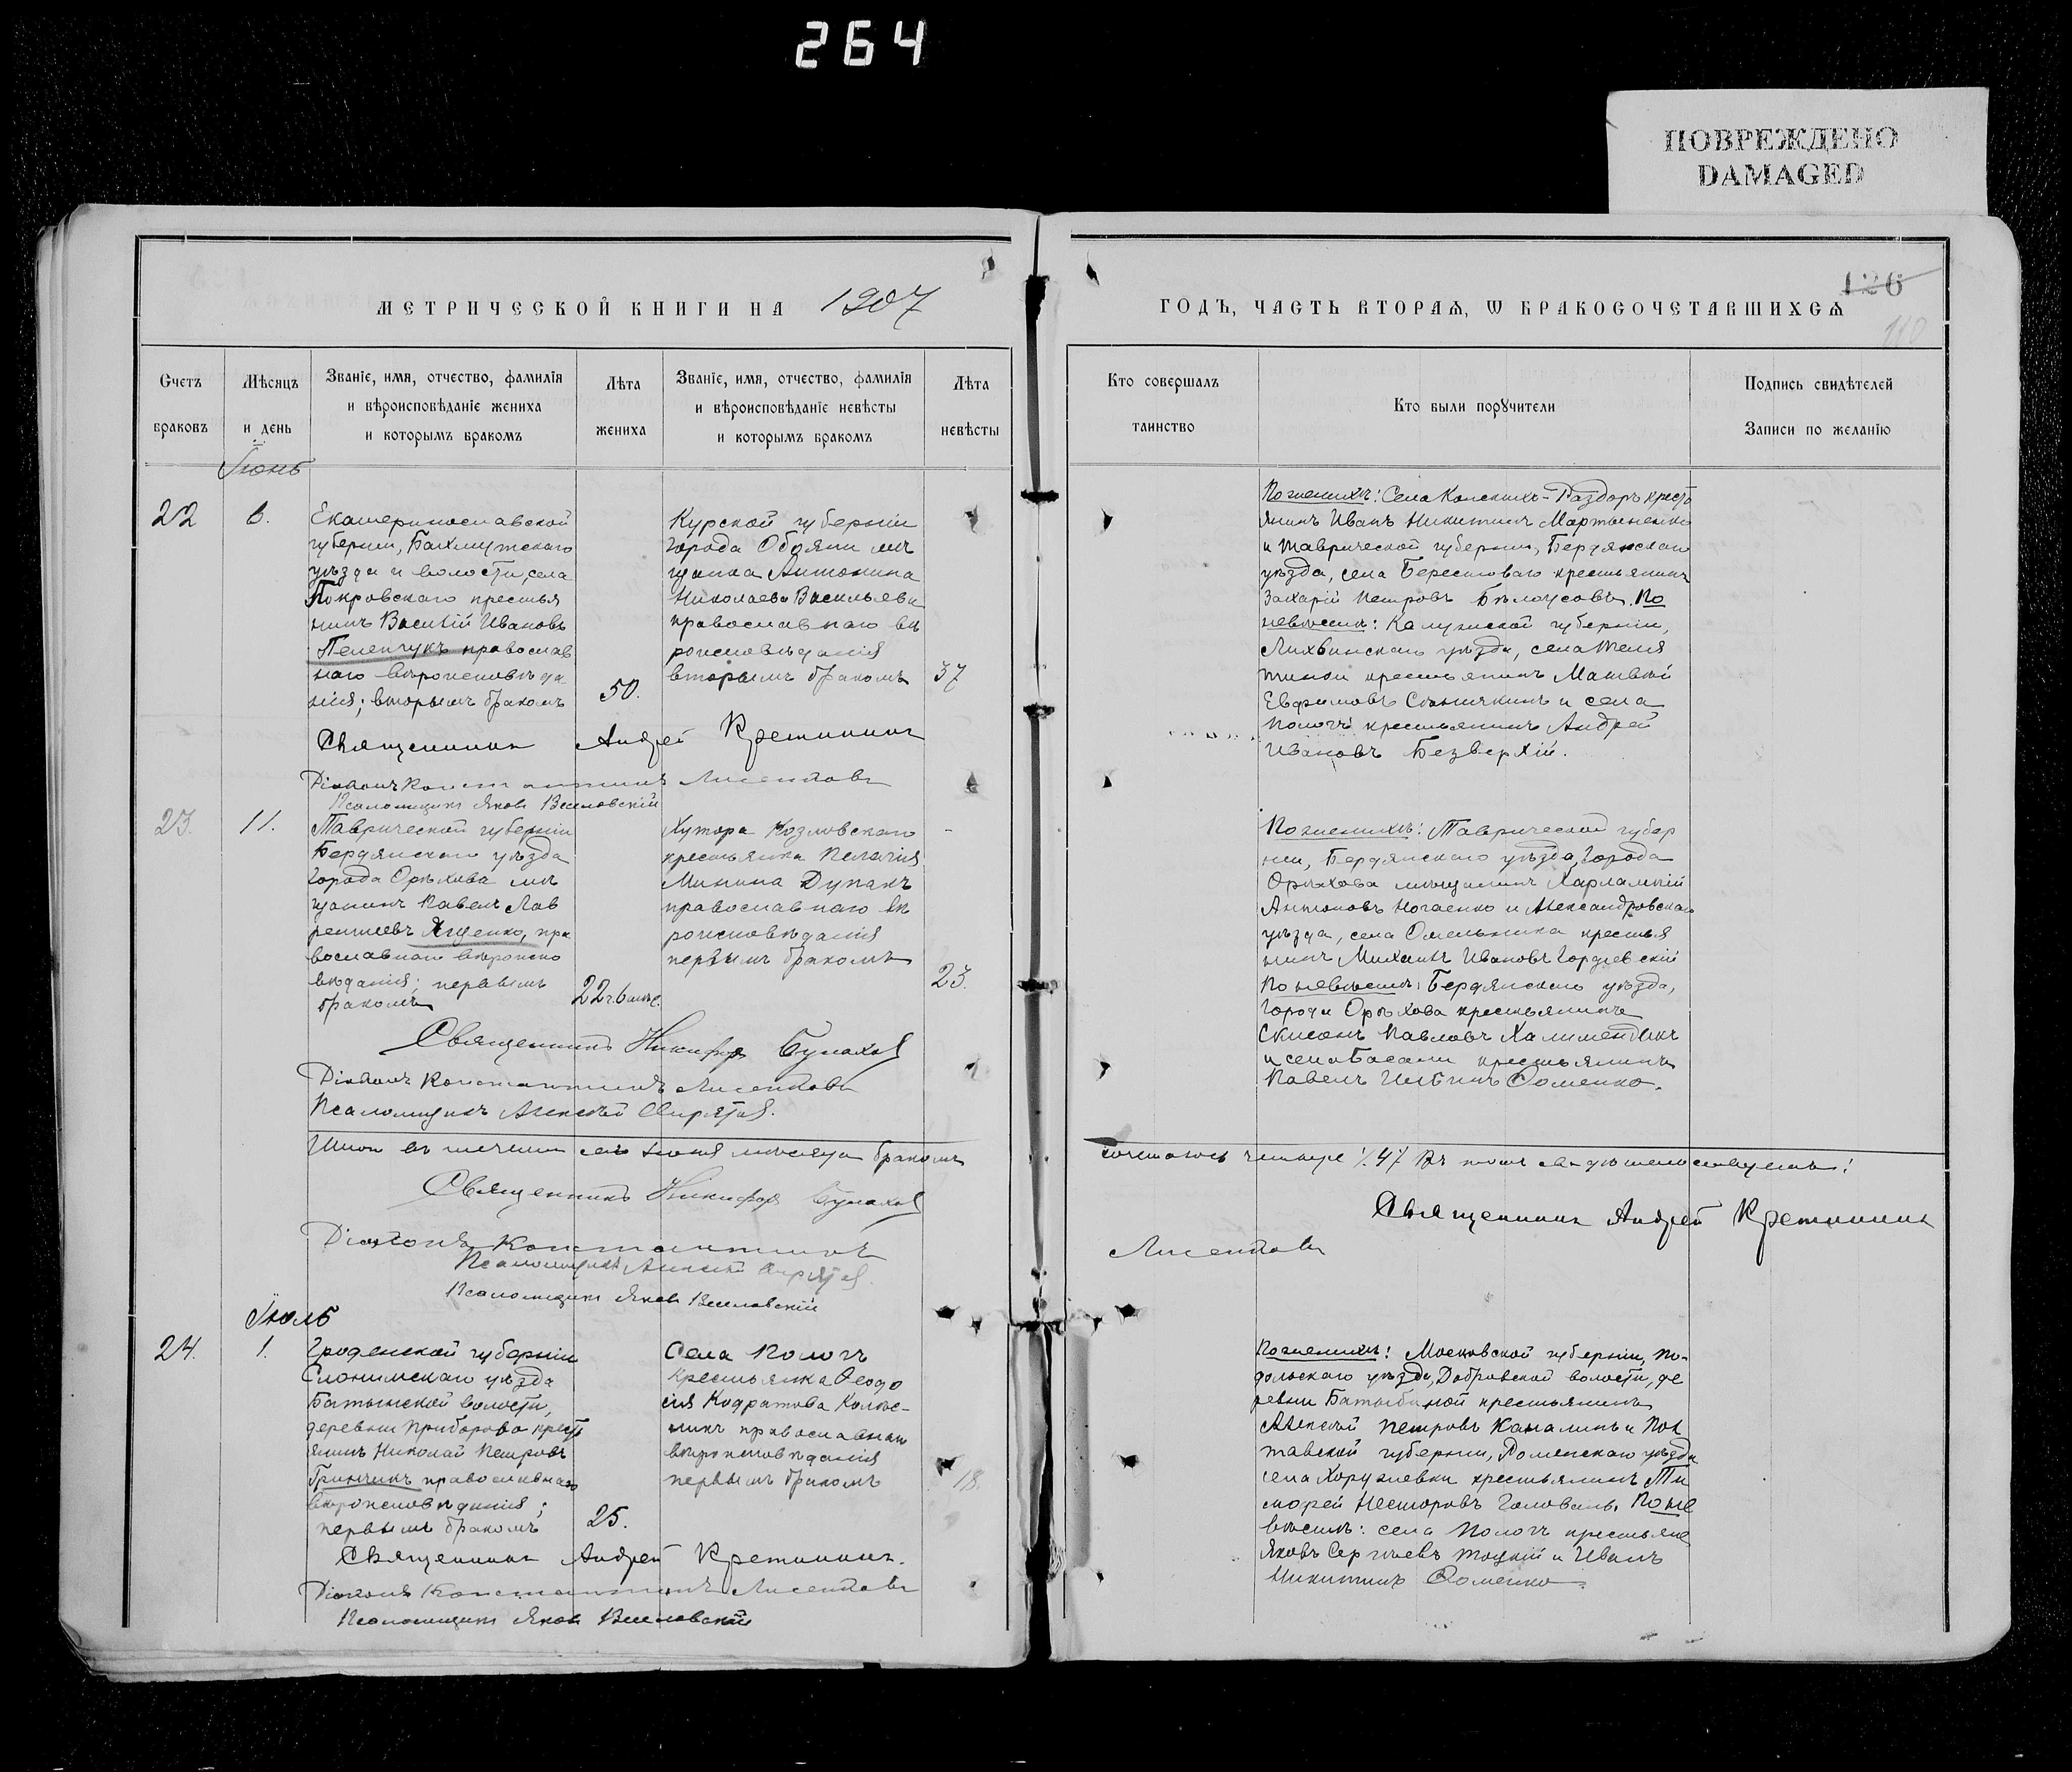 264
ПОВРЕЖДЕНО
DAMAGED
МЕТРИЧЕСКОЙ КНИГИ НА 1907
ГОДЪ, ЧАСТЬ ВТОРАЯ, Ѡ БРАКОСОЧЕТАВШИХСЯ
126
110
Счетъ
браковъ
Мѣсяцъ
и день
Званіе, имя, отчество, фамилія
и вѣроисповѣданіе жениха
и которымъ бракомъ
Лѣта
жениха
Званіе, имя, отчество, фамилія
и вѣроисповѣданіе невѣсты
и которымъ бракомъ
Лѣта
невѣсты
Кто совершалъ
таинство
Кто были порꙋчители
Подпись свидѣтелей
Записи по желанію
Іюнь
22
6.
Екатеринославской
губерніи, Бахмутскаго
уѣзда и волости, села
Покровскаго крестья
нинъ Василій Ивановъ
Пеленчукъ православ
наго вѣроисповѣда
нія; вторымъ бракомъ
50.
Курской губерніи
города Обояни мѣ
щанка Антонина
Николаева Васильева
православнаго вѣ
роисповѣданія
вторымъ бракомъ
37
Священникъ Андрей Кретининъ
Діаконъ Константинъ
Псаломщикъ Яковъ Веселовскій
По женихѣ: Села Конскихъ-Раздоръ кресть
янинъ Иванъ Никитинъ Мартыненко
и Таврической губерніи, Бердянскаго
уѣзда, села Берестоваго крестьянинъ
Захарій Петровъ Бѣлоусовъ. По
невѣстѣ: Калужской губерніи,
Лихвинскаго уѣзда, села
крестьянинъ Матвѣй
Евфимовъ и села
Пологъ крестьянинъ Андрей
Ивановъ Безверхій.
23.
11.
Таврической губерніи
Бердянскаго уѣзда
города Орѣхова мѣ
щанинъ Павелъ Лав
рентіевъ Яценко, пра
вославнаго вѣроиспо
вѣданія; первымъ
бракомъ
22 г. 6 мѣс.
Хутора Козловскаго
крестьянка Пелагія
Минина Дупакъ
православнаго вѣ
роисповѣданія
первымъ бракомъ
23.
Священникъ Никифоръ Булахов
Діаконъ Константинъ
Псаломщикъ Алексѣй
По женихѣ: Таврической губер
ніи, Бердянскаго уѣзда, города
Орѣхова мѣщанинъ Харлампій
Антоновъ Ногаенко и Александровскаго
уѣзда, села Омельника крестья
нинъ Михаилъ Ивановъ Гордіевскій
По невѣстѣ: Бердянскаго уѣзда,
города Орѣхова крестьянинъ
Павловъ
и села Басани крестьянинъ
Павелъ Фоменко.
Итого въ теченіи сего іюня мѣсяца бракомъ
сочеталось четыре /.4/ Въ томъ свидѣтельствуемъ:
Священникъ Никифоръ Булахов
Священникъ Андрей Кретининъ
Діаконъ Константинъ
Псаломщикъ Алексѣй
Псаломщикъ Яковъ Веселовскій
Іюль
24.
1.
Гродненской губерніи
Слонимскаго уѣзда
волости,
деревни Приборово кресть
янинъ Николай Петровъ
Гринчикъ православнаго
вѣроисповѣданія;
первымъ бракомъ
25.
Села Пологъ
крестьянка Феодо
сія Кодратова Колѣс-
никъ православнаго
вѣроисповѣданія
первымъ бракомъ
18.
Священникъ Андрей Кретининъ.
Діаконъ Константинъ
Псаломщикъ Яковъ Веселовскій
По женихѣ: Московской губерніи, По-
дольскаго уѣзда, Добровской волости, де
ревни крестьянинъ
Алексѣй Петровъ и Пол
тавской губерніи, Роменскаго уѣзда
села Хоружевки крестьянинъ Ти
мофей Несторовъ Головань. По не
вѣстѣ: села Пологъ крестьяне
Яковъ Сергѣевъ Тоцкій и Иванъ
Никитинъ Фоменко.